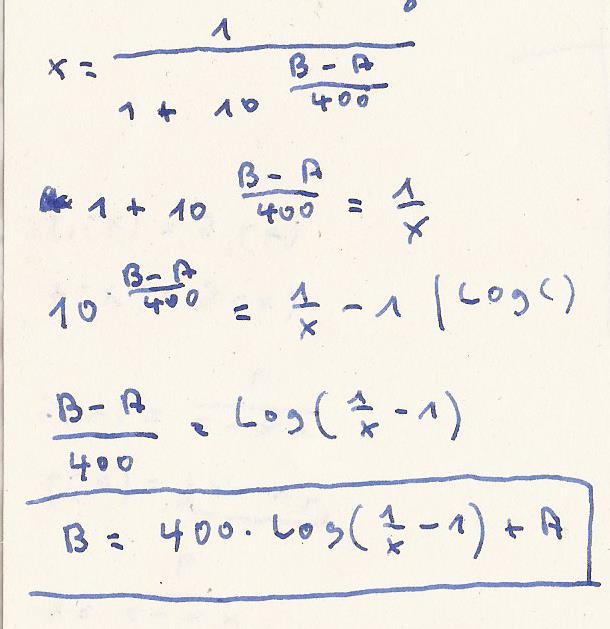 x = 1 / (1 + 10^((B - A)/400))
1 + 10^((B - A)/400) = 1/x
10^((B - A)/400) = 1/x - 1 | Log()
(B - A)/400 = Log(1/x - 1)
B = 400 · Log(1/x - 1) + A